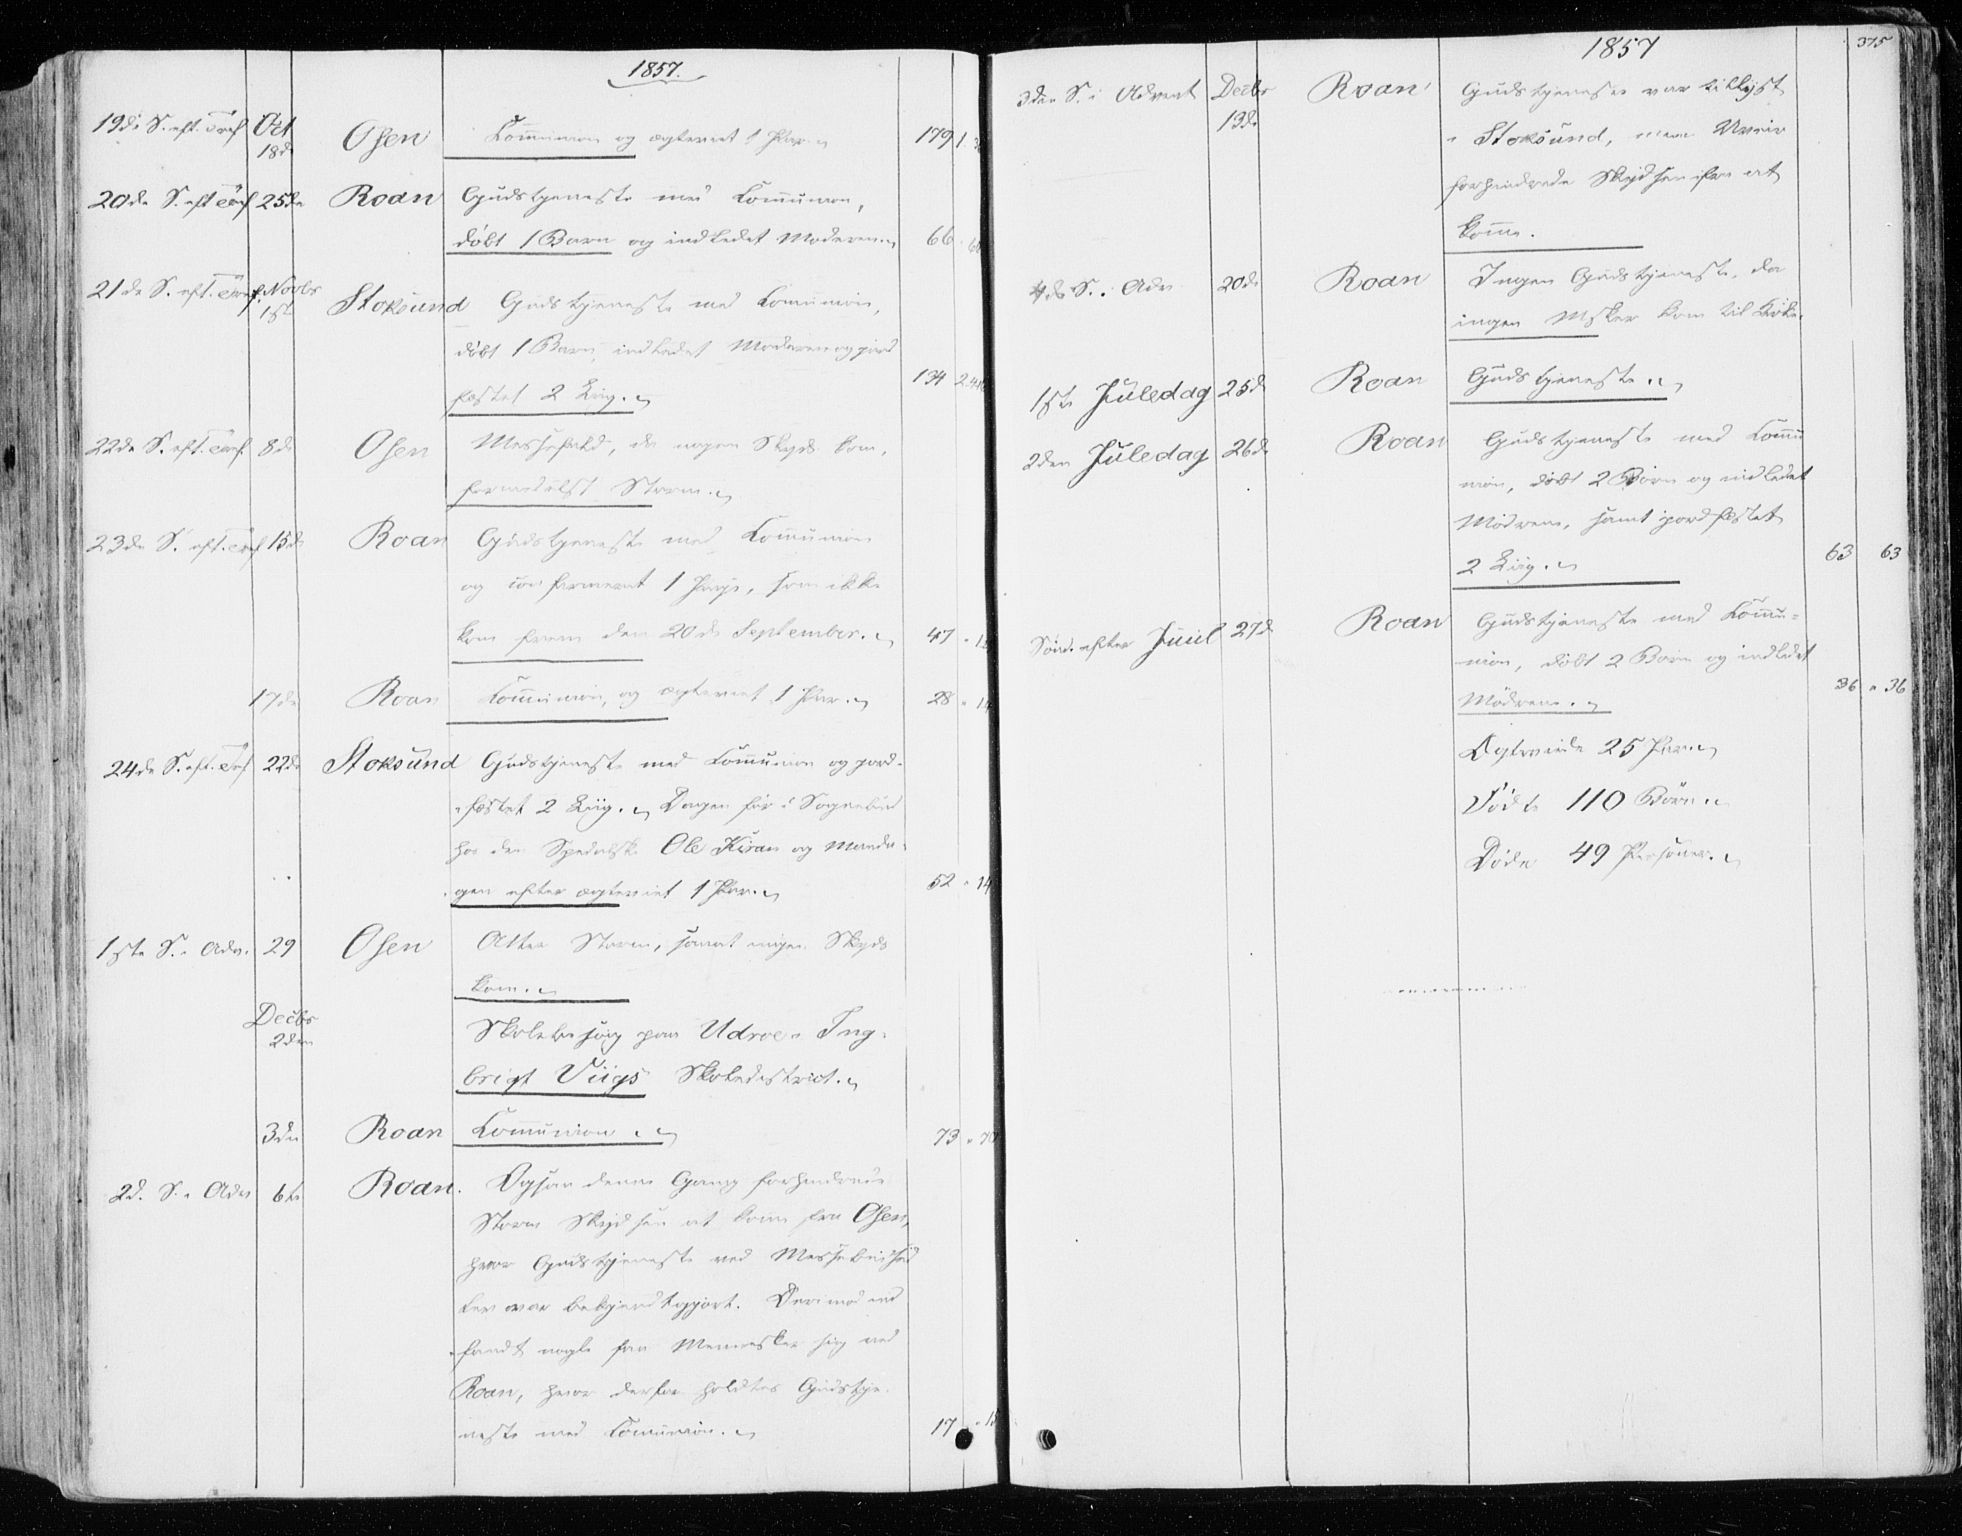 1857.
19de S. eft. Tref Oct 18de Osen Communion og ægteviet 1 Par. 179 1.
20de S. eft Tref 25de Roan Gudstjeneste med Communion,
døbt 1 Barn og indledet Moderen. 66
21de S. eft. Tref. Novbr 1ste Stoksund Gudstjeneste med Communion,
døbt 1 Barn, indledet Moderen og jord
fæstet 2 Liig. 134 2.
22de S. eft. Tref. 8de Osen Messefald, da ingen Skyds kom,
formedelst Storm.
23de S. eft. Tref 15de Roan Gudstjeneste med Communion
og confirmeret 1 Pige, som ikke
kom frem den 20de September. 47
17de Roan Communion, og ægteviet 1 Par. 28 " 14
24de S. eft. Tref 22de Stoksund Gudstjeneste med Communion og jord-
fæstet 2 Liig. Dagen før i Sognebud
hos den Spedalske Ole Kiran og Manda-
gen efter ægteviet 1 Par. 52 " 14
1ste S. i Adv. 29 Osen Atter Storm, samt ingen Skyds
kom.
Decbr 2den Skolebesøg paa Udroe i Ing-
brigt Viigs Skoledistrict.
3die Roan Communion. 73 " 70
2d. S. i Adv 6te Roan. Ogsaa denne Gang forhindrede
Storm Skydsen at komme fra Osen,
hvor Gudstjeneste ved
var bekjendtgjort. Derimod ind
fandt nogle faa Mennesker sig ved
Roan, hvor derfor holdtes Gudstje-
neste med Communion. 17 " 15
1857 375
3die S. i Advent Decbr 13de Roan Gudstjeneste var tillyst
i Stoksund, men Uveir
forhindrede Skydsen fra at
komme.
4de S. i Adv. 20de Roan Ingen Gudstjeneste, da
ingen Msker kom til Kirke.
1ste Juledag 25de Roan Gudstjeneste.
2den Juledag 26de Roan Gudstjeneste med Commu
nion, døbt 2 Børn og indledet
Mødrene, samt jordfæstet
2 Liig. 63 63
Sønd. efter Juul 27de Roan Gudstjeneste med Commu-
nion, døbt 2 Børn og indledet
Mødrene. 36 " 36
Ægteviede 25 Par.
Fødte 110 Børn.
Døde 49 Personer.